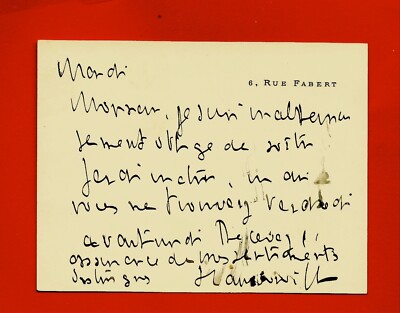 Mardi
6, RUE FABERT
Monsieur, je suis malheureu
sement obligé de sortir
Jeudi matin,
vous me trouverez Vendredi
avant midi Recevez l'
assurance de mes sentiments
distingués